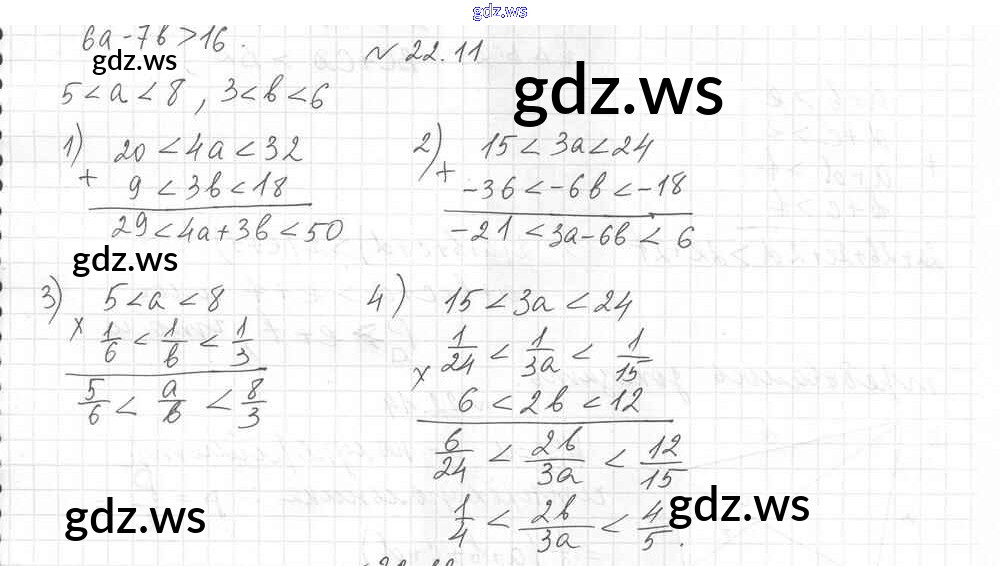 gdz.ws
6a - 7b > 16.
№ 22.11
gdz.ws
5 < a < 8 , 3 < b < 6
gdz.ws
1) 20 < 4a < 32
+ 9 < 3b < 18
29 < 4a + 3b < 50
2) 15 < 3a < 24
+ -36 < -6b < -18
-21 < 3a - 6b < 6
gdz.ws
3) 5 < a < 8
× 1/6 < 1/b < 1/3
5/6 < a/b < 8/3
4) 15 < 3a < 24
1/24 < 1/3a < 1/15
× 6 < 2b < 12
6/24 < 2b/3a < 12/15
1/4 < 2b/3a < 4/5.
gdz.ws
gdz.ws